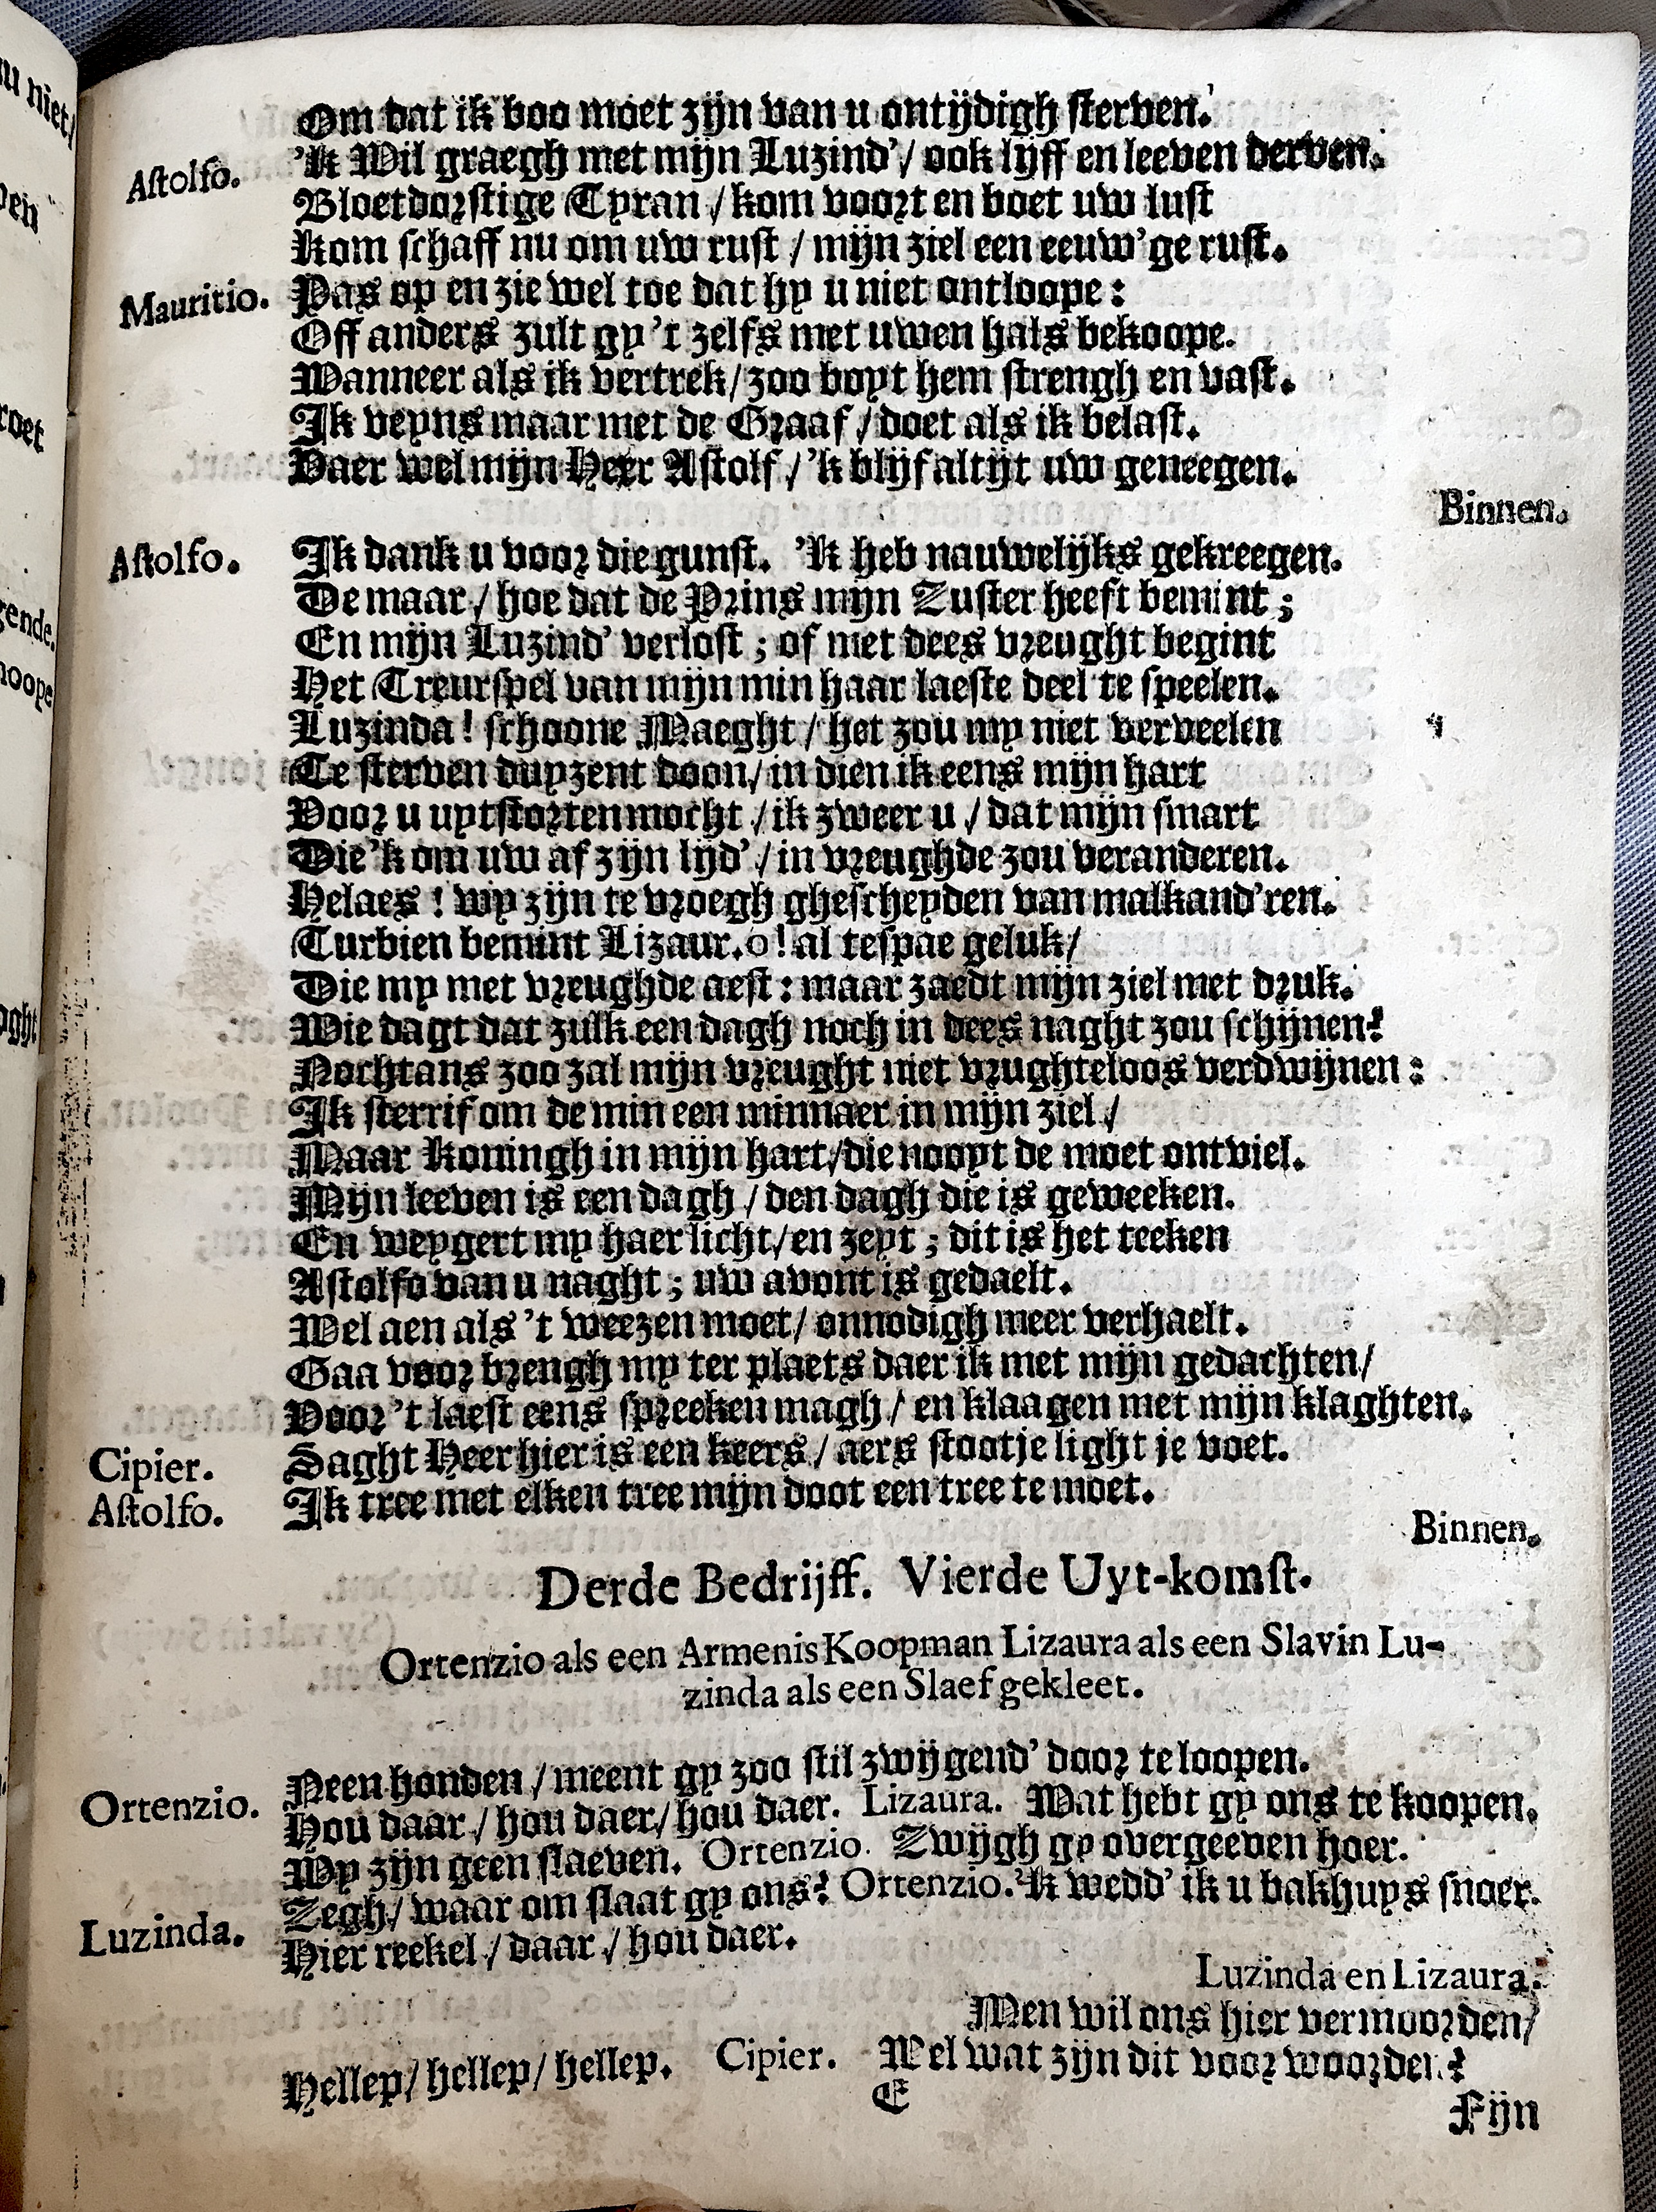 Om dat ik doo moet zijn van u ontijdigh sterven.
Astolfo. 'k Wil graegh met mijn Luzind'/ ook lijff en leeven derven.
Bloetdorstige Tyran / kom voort en boet uw lust
Kom schaff nu om uw rust / mijn ziel een eeuw'ge rust.
Mauritio. Pas op en zie wel toe dat hy u niet ontloope:
Off anders zult gy 't zelfs met uwen hals bekoope.
Wanneer als ik vertrek / zoo boyt hem strengh en vast.
Ik veyns maar met de Graaf / doet als ik belast.
Vaer wel mijn Heer Astolf / 'k blijf altijt uw geneegen.
Binnen.
Astolfo. Ik dank u voor die gunst. 'k heb nauwelijks gekreegen.
De maar / hoe dat de Prins mijn Zuster heeft bemint;
En mijn Luzind' verlost; of met dees vreught begint
Het Treurspel van mijn min haar laeste deel te speelen.
Luzinda! schoone Maeght / het zou my niet verveelen
Te sterven duyzent doon / in dien ik eens mijn hart
Voor u uytstorten mocht / ik zweer u / dat mijn smart
Die 'k om uw af zijn lijd' / in vreughde zou veranderen.
Helaes! wy zijn te vroegh ghescheyden van malkand'ren.
Turbien bemint Lizaur. o! al te spae geluk/
Die my met vreughde aest: maar zaedt mijn ziel met druk.
Wie dagt dat zulk een dagh noch in dees naght zou schijnen?
Nochtans zoo zal mijn vreught niet vrughteloos verdwijnen:
Ik sterrif om de min een minnaer in mijn ziel /
Maar Koningh in mijn hart / die nooyt de moet ontviel.
Mijn leeven is een dagh / den dagh die is geweeken.
En weygert my haer licht / en zeyt; dit is het teeken
Astolfo van u naght; uw avont is gedaelt.
Wel aen als 't weezen moet / onnodigh meer verhaelt.
Gaa voor brengh my ter plaets daer ik met mijn gedachten/
Voor 't laest eens spreeken magh / en klaagen met mijn klaghten.
Cipier. Saght Heer hier is een keers / aers stootje light je voet.
Astolfo. Ik tree met elken tree mijn doot een tree te moet.
Binnen.
Derde Bedrijff. Vierde Uyt-komst.
Ortenzio als een Armenis Koopman Lizaura als een Slavin Lu-
zinda als een Slaef gekleet.
Ortenzio. Neen honden / meent gy zoo stil zwijgend' door te loopen.
Hou daar / hou daer / hou daer. Lizaura. Wat hebt gy ons te koopen.
Wy zijn geen slaeven. Ortenzio. Zwijgh gy overgeeven hoer.
Luzinda. Zegh / waar om slaat gy ons? Ortenzio. 'k wedd' ik u bakhuys snoer.
Hier reekel / daar / hou daer.
Luzinda en Lizaura.
Men wil ons hier vermoorden/
Hellep / hellep / hellep. Cipier. Wel wat zijn dit voor woorden?
E
Fijn